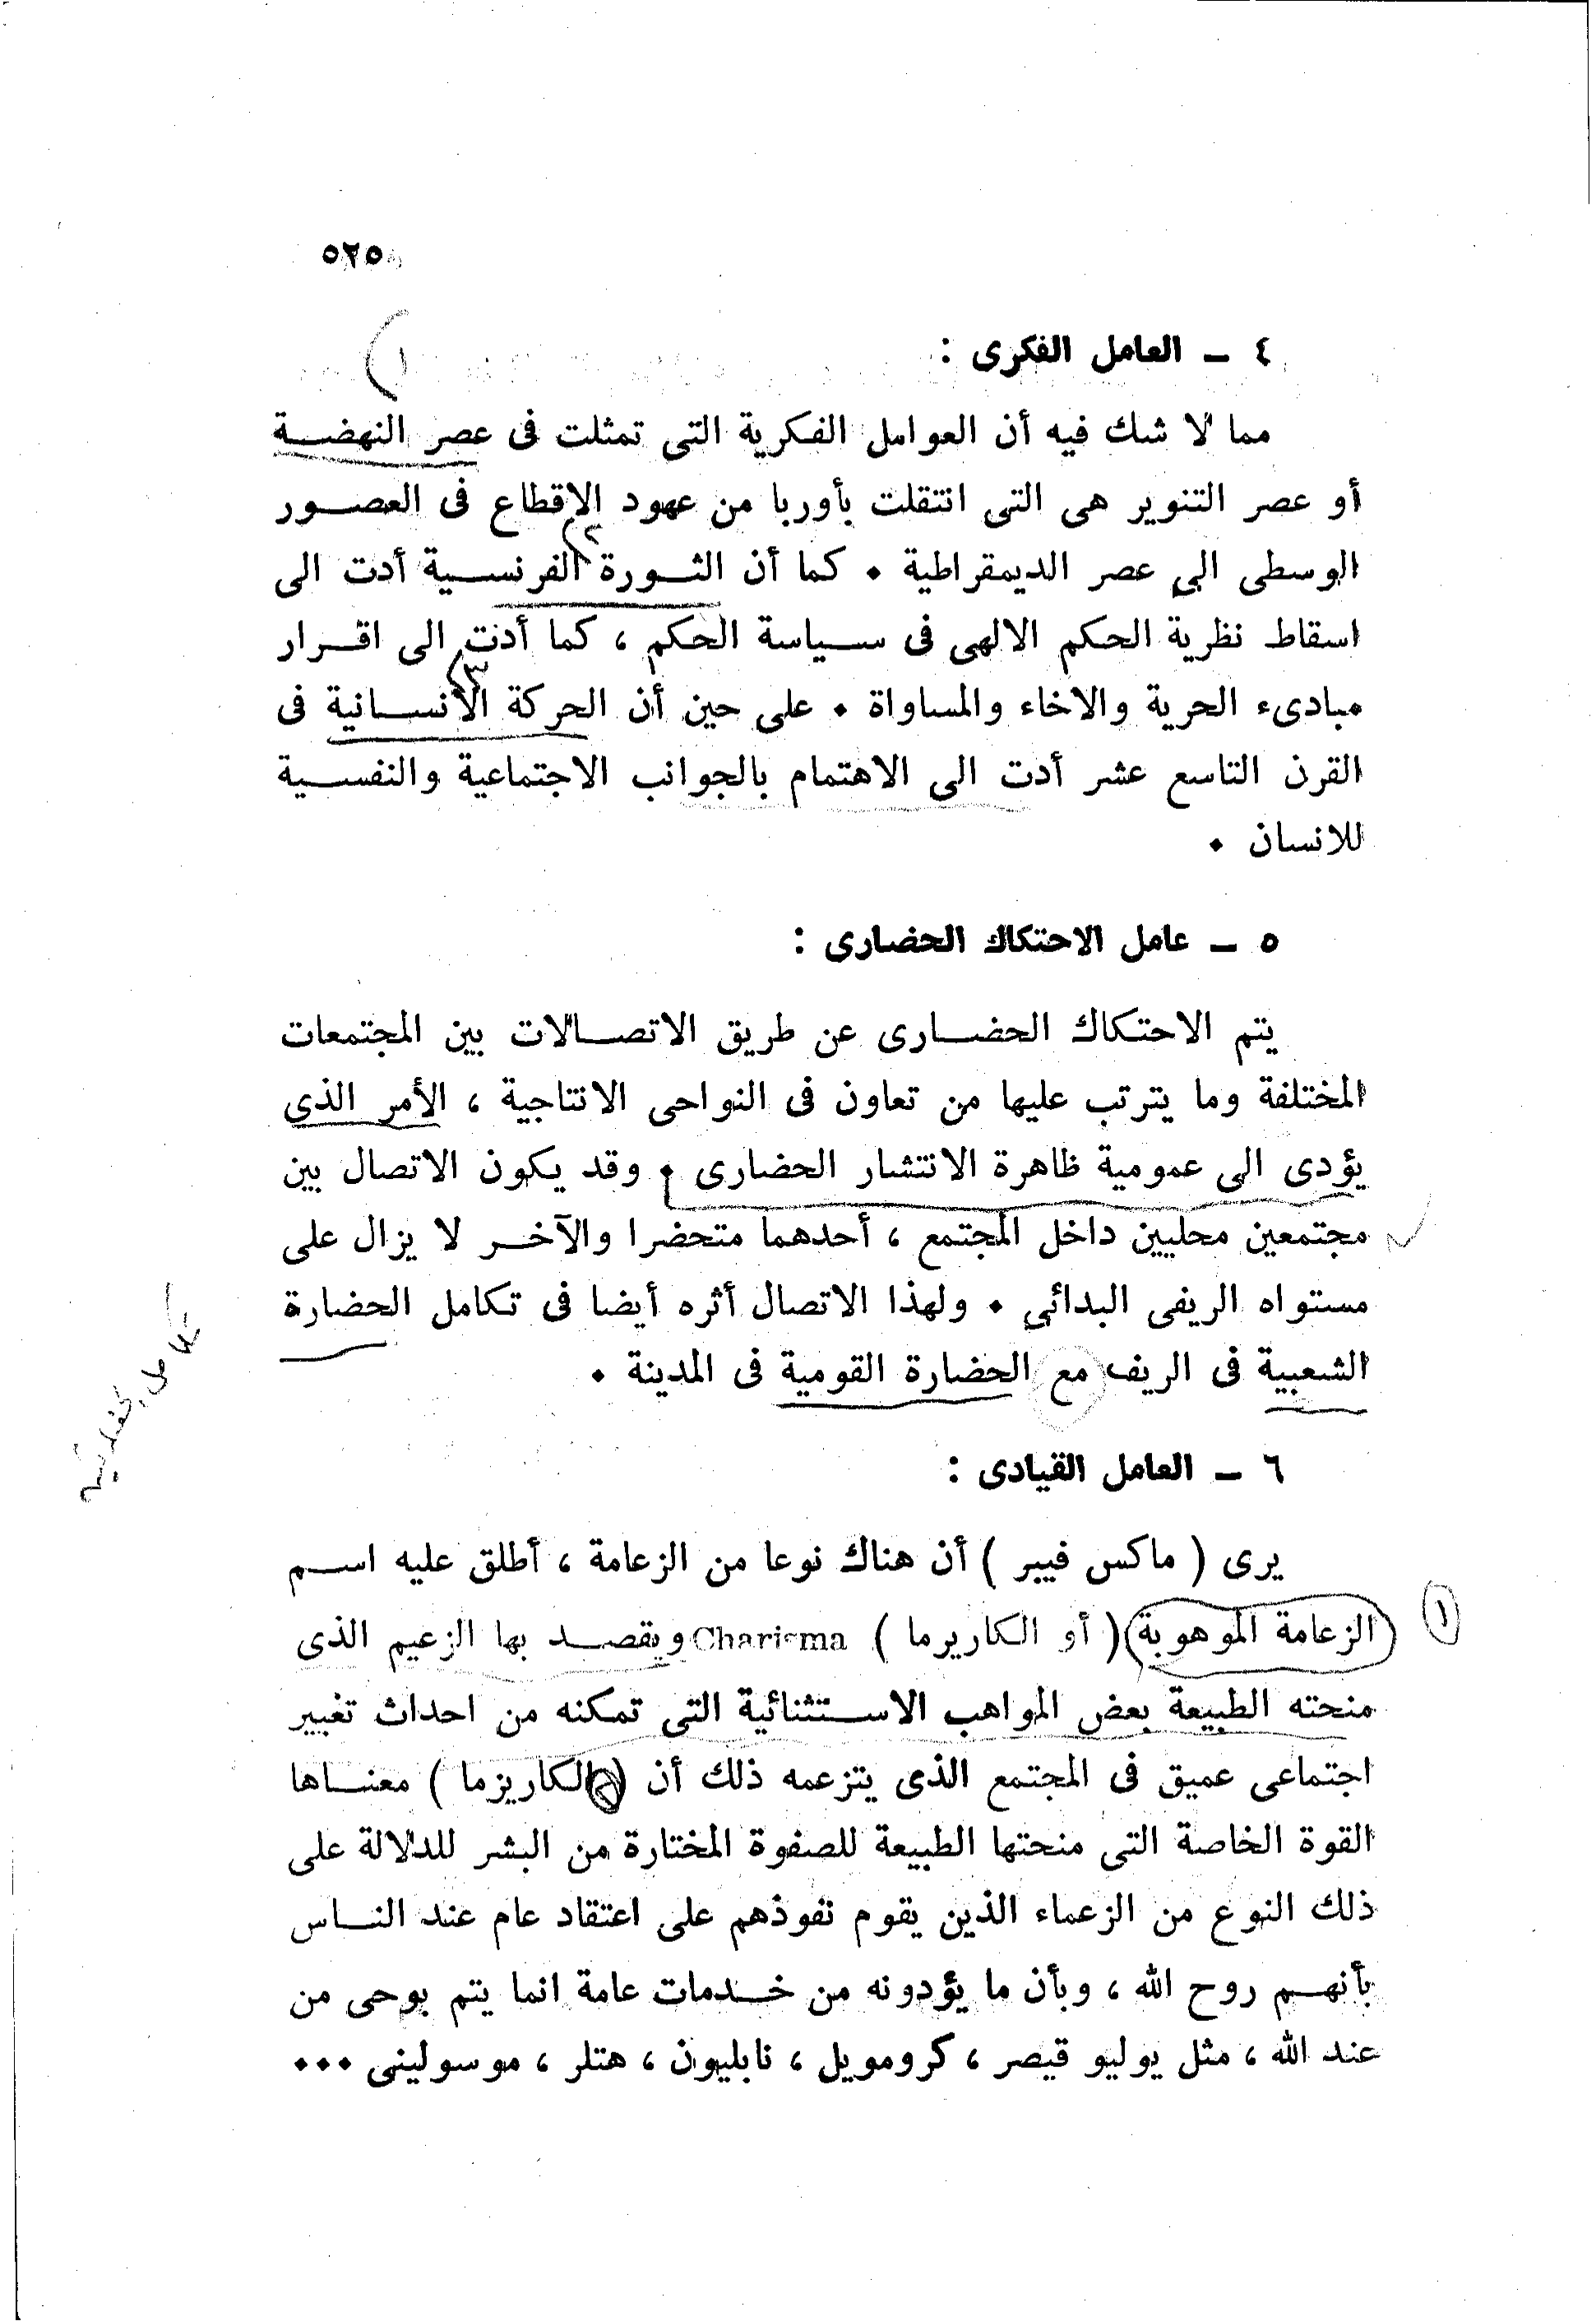 ٥٢٥
٤ ــ العامل الفكرى :
١
مما لا شك فيه أن العوامل الفكرية التى تمثلت فى عصر النهضة
أو عصر التنوير هى التى انتقلت بأوربا من عهود الاقطاع فى العصور
الوسطى الى عصر الديمقراطية . كما أن الثورة الفرنسية أدت الى
اسقاط نظرية الحكم الالهى فى سياسة الحكم ، كما أدت الى اقرار
مبادىء الحرية والاخاء والمساواة . على حين أن الحركة الانسانية فى
القرن التاسع عشر أدت الى الاهتمام بالجوانب الاجتماعية والنفسية
للانسان .
٥ ــ عامل الاحتكاك الحضارى :
يتم الاحتكاك الحضارى عن طريق الاتصالات بين المجتمعات
المختلفة وما يترتب عليها من تعاون فى النواحى الانتاجية ، الأمر الذى
يؤدى الى عمومية ظاهرة الانتشار الحضارى . وقد يكون الاتصال بين
مجتمعين محليين داخل المجتمع ، أحدهما متحضرا والآخر لا يزال على
مستواه الريفى البدائى . ولهذا الاتصال أثره أيضا فى تكامل الحضارة
الشعبية فى الريف مع الحضارة القومية فى المدينة .
٦ ــ العامل القيادى :
يرى ( ماكس فيبر ) أن هناك نوعا من الزعامة ، أطلق عليه اسم
الزعامة الموهوبة ( أو الكاريرما ) Charisma ويقصد بها الزعيم الذى
١
منحته الطبيعة بعض المواهب الاستثنائية التى تمكنه من احداث تغيير
اجتماعى عميق فى المجتمع الذى يتزعمه ذلك أن ( الكاريزما ) معناها
القوة الخاصة التى منحتها الطبيعة للصفوة المختارة من البشر للدلالة على
ذلك النوع من الزعماء الذين يقوم نفوذهم على اعتقاد عام عند الناس
بأنهم روح الله ، وبأن ما يؤدونه من خدمات عامة انما يتم بوحى من
عند الله ، مثل يوليو قيصر ، كرومويل ، نابليون ، هتلر ، موسولينى ...